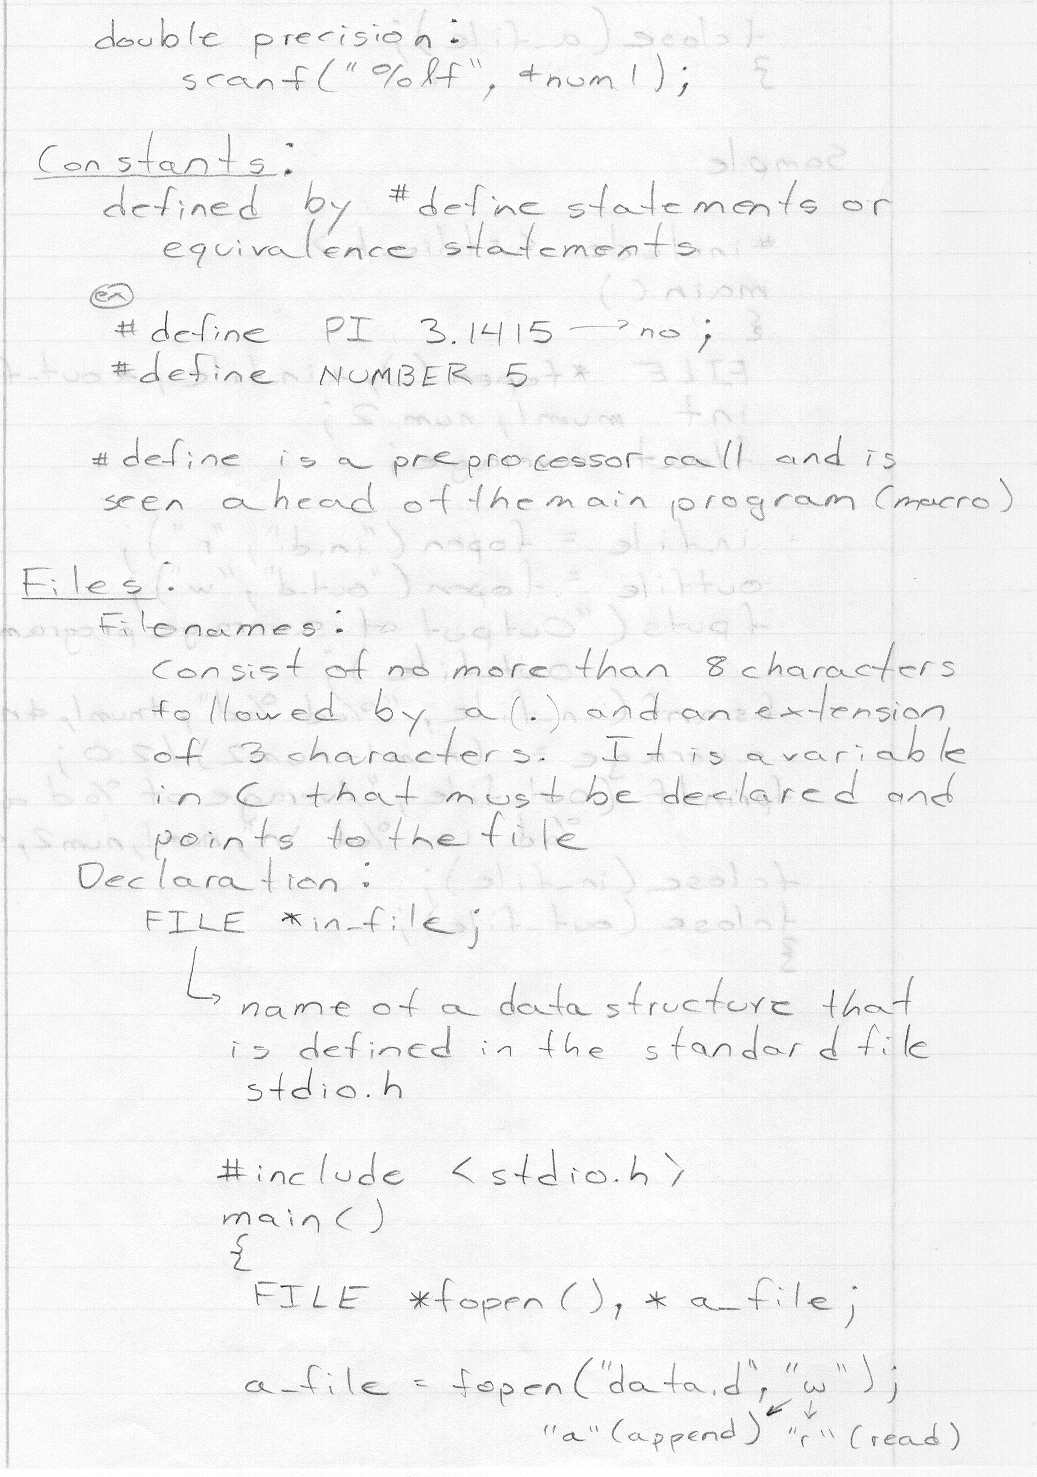 double precision:
scanf("%lf", &num1);
Constants:
defined by #define statements or
equivalence statements
ex
#define PI 3.1415 → no ;
#define NUMBER 5
#define is a preprocessor call and is
seen ahead of the main program (macro)
Files:
Filenames:
consist of no more than 8 characters
followed by a (.) and an extension
of 3 characters. It is a variable
in C that must be declared and
points to the file
Declaration:
FILE *in_file;
name of a data structure that
is defined in the standard file
stdio.h
#include <stdio.h>
main()
{
FILE *fopen(), *a_file;
a_file = fopen("data.d", "w");
"a" (append) "r" (read)